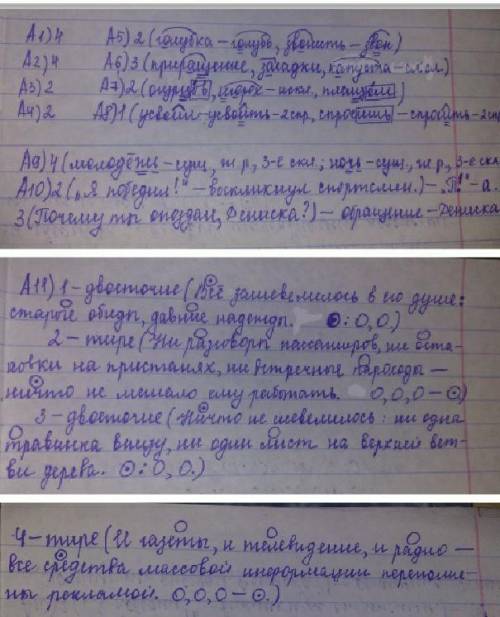 А1) 4 А5) 2 (голубка – голубь, звонить – звон)
А2) 4 А6) 3 (приращение, загадки, капуста – искл.)
А3) 2 А7) 2 (огурцы, – искл., плащом)
А4) 2 А8) 1 (усвоил – усвоить – 2 спр., спросишь – спросить – 2 спр.
А9) 4 (молодёжь – сущ., ж.р., 3-е скл.; ночь – сущ., ж.р., 3-е скл.
А10) 2 („Я победил!“ – воскликнул спортсмен.) – „П!“ – а.
3 (Почему ты опоздал, Дениска?) – обращение – Дениска
А11) 1 – двоеточие (Всё зашевелилось в его душе:
старые обиды, давние надежды. ⊙: О, О.)
2 – тире (Ни разговоры пассажиров, ни оста-
новки на пристанях, ни встречные пароходы –
ничто не мешало ему работать. О, О, О – ⊙.)
3 – двоеточие (Ничто не шевелилось: ни одна
травинка внизу, ни один лист на верхней вет-
ви дерева. ⊙: О, О.)
4 – тире (И газеты, и телевидение, и радио –
все средства массовой информации переполне-
ны рекламой. О, О, О – ⊙.)